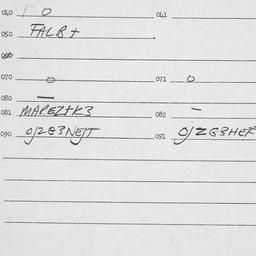 040 F O 041
050 FALB+
060
070 0 071 0
080 —
081 MAPEZ+K3 082 —
090 0/2G3NEJT 091 0/ZG3HEF